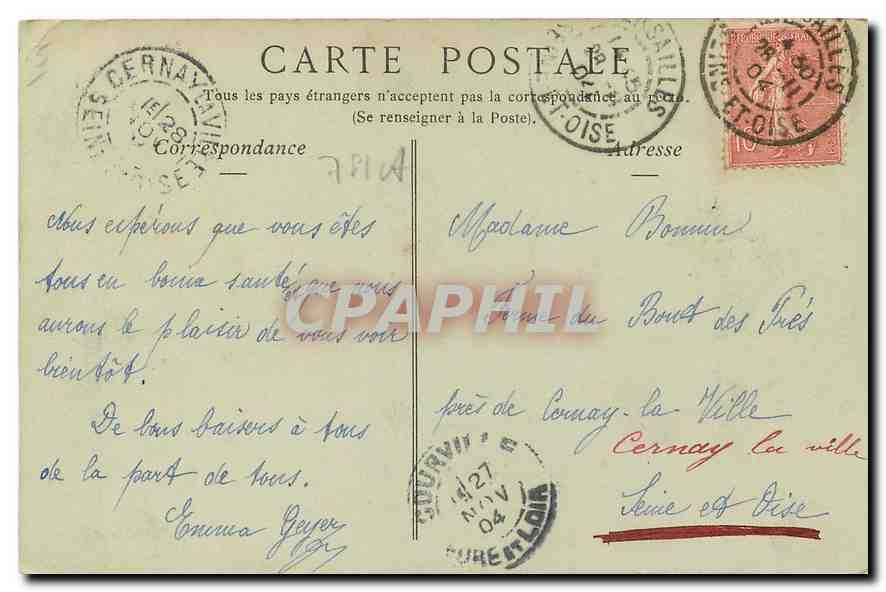 CARTE POSTALE
Tous les pays étrangers n'acceptent pas la correspondance au recto.
(Se renseigner à la Poste).
Correspondance
781A
Nous espérons que vous êtes
tous en bonne santé, et que nous
aurons le plaisir de vous voir
bientôt.
De bons baisers à tous
de la part de tous.
Emma Geyer
Adresse
Madame Bonnin
Ferme du Bout des Prés
près de Cernay-la Ville
Cernay la ville
Seine et Oise
CPAPHIL
CERNAY-LA-VILLE
SEINE
28
VERSAILLES
SEINE-ET-OISE
04
VERSAILLES
SEINE-ET-OISE
04
10
COURVILLE
27
NOV
04
EURE ET LOIR